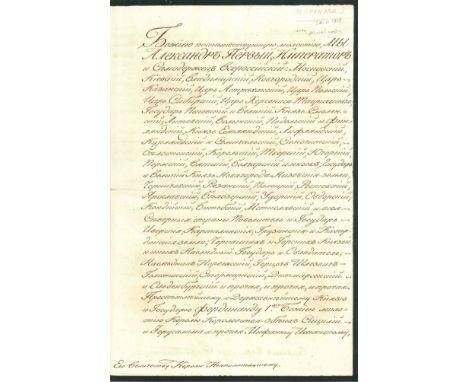 Божіею поспѣшествующею милостію, МЫ
Александръ Первый, Императоръ
и Самодержецъ Всероссійскій: Московскій,
Кіевскій, Владимирскій, Новгородскій, Царь
Казанскій, Царь Астраханскій, Царь Польскій,
Царь Сибирскій, Царь Херсониса Таврическаго,
Государь Псковскій и Великій Князь Смолен-
скій, Литовскій, Волынскій, Подольскій и Фин-
ляндскій, Князь Эстляндскій, Лифляндскій,
Курляндскій и Семигальскій, Самогитскій,
Бѣлостокскій, Корельскій, Тверскій, Югорскій
Пермскій, Вятскій, Болгарскій и иныхъ; Государь
и Великій Князь Новагорода Низовскія земли,
Черниговскій, Рязанскій, Полоцкій, Ростовскій,
Ярославскій, Бѣлоозерскій, Удорскій, Обдорскій,
Кондійскій, Витебскій, Мстиславскій и всея
Сѣверныя страны Повелитель и Государь
Иверскія, Карталинскія, Грузинскія и Кабар-
динскія земли; Черкаскихъ и Горскихъ Князей
и иныхъ Наслѣдный Государь и Обладатель;
Наслѣдникъ Норвежскій, Герцогъ Шлезвигъ-
Голстинскій, Стормарнскій, Дитмарсенскій
и Ольденбургскій и прочая, и прочая, и прочая.
Пресвѣтлѣйшему и Державнѣйшему Князю
и Государю Фердинанду 1му Божіею мило-
стію Королю Королевства обѣихъ Сициліи
и Іерусалима и прочая Инфанту Испанскому,
Его Величеству Королю Неаполитанскому.